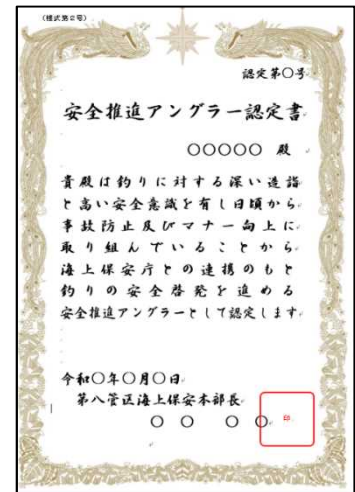 （様式第2号）
認定第〇号
安全推進アングラー認定書
〇〇〇〇〇 殿
貴殿は釣りに対する深い造詣
と高い安全意識を有し日頃から
事故防止及びマナー向上に
取り組んでいることから
海上保安庁との連携のもと
釣りの安全啓発を進める
安全推進アングラーとして認定します
令和〇年〇月〇日
第八管区海上保安本部長
〇 〇 〇 〇
印